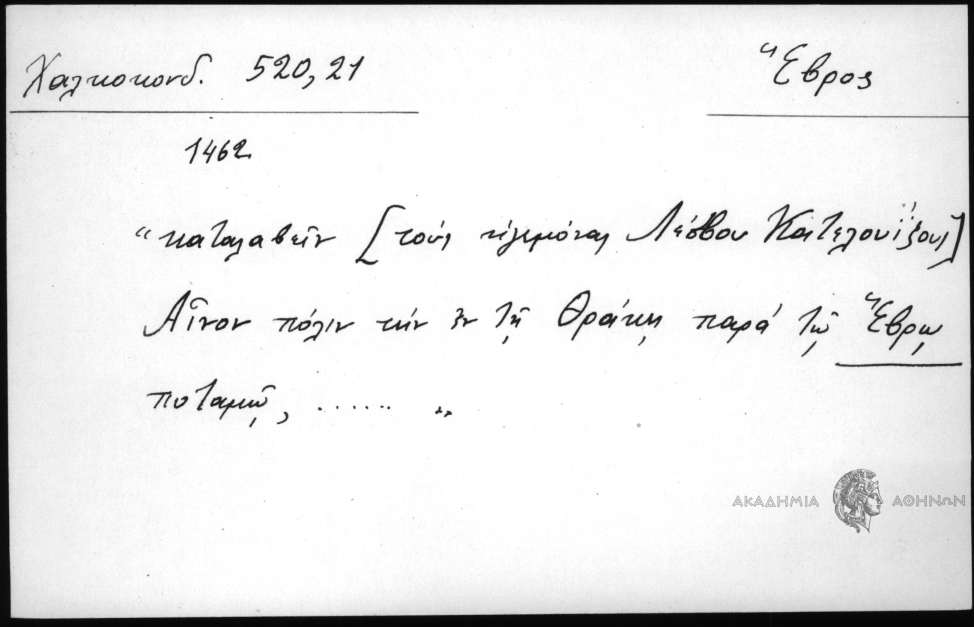 Χαλκοκονδ. 520,21
Ἕβρος
1462
"καταλαβεῖν [τούς ἡγεμόνας Λέσβου Κατελουΐζους]
Αἶνον πόλιν τήν ἐν τῇ Θράκῃ παρά τῷ Ἕβρῳ
ποταμῷ, ...... "
ΑΚΑΔΗΜΙΑ ΑΘΗΝΩΝ